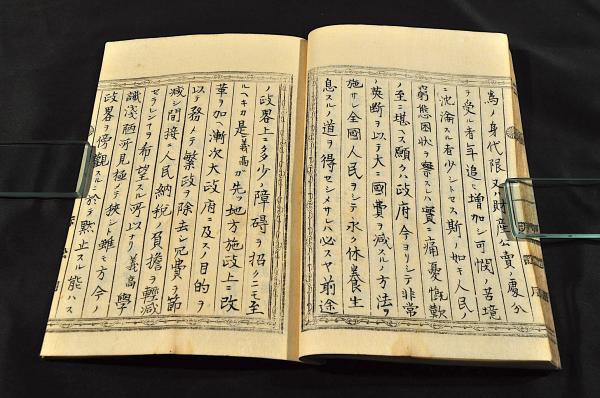 為ノ身代限又ハ財産公賣ノ處分
ヲ受ル者年追テ増加シ可憫ノ苦境
ニ沈淪スル者少シトセス斯ノ如キ人民ノ
窮態困状ヲ察スレハ實ニ痛憂慨歎
ノ至ニ堪ヘス願クハ政府今ヨリシテ非常
ノ英断ヲ以テ大ニ國費ヲ減スルノ方法ヲ
施サレ全國人民ヲシテ永ク休養生
息スルノ道ヲ得セシメサレハ必スヤ前途
ノ政畧上ニ多少ノ障碍ヲ招クニモ至
ルヘキカ是義高カ先ツ地方施政上ニ改
革ヲ加ヘ漸次大政府ニ及スノ目的ヲ
以テ務メテ繁政ヲ除去シ冗費ヲ節
減シ間接ニ人民納税ノ負擔ヲ輕減
セラレンヿヲ希望スル所以ナリ義高學
識淺陋所見極メテ狭シト雖モ方今ノ
政畧ヲ傍觀スルニ於テ黙止スル能ハス